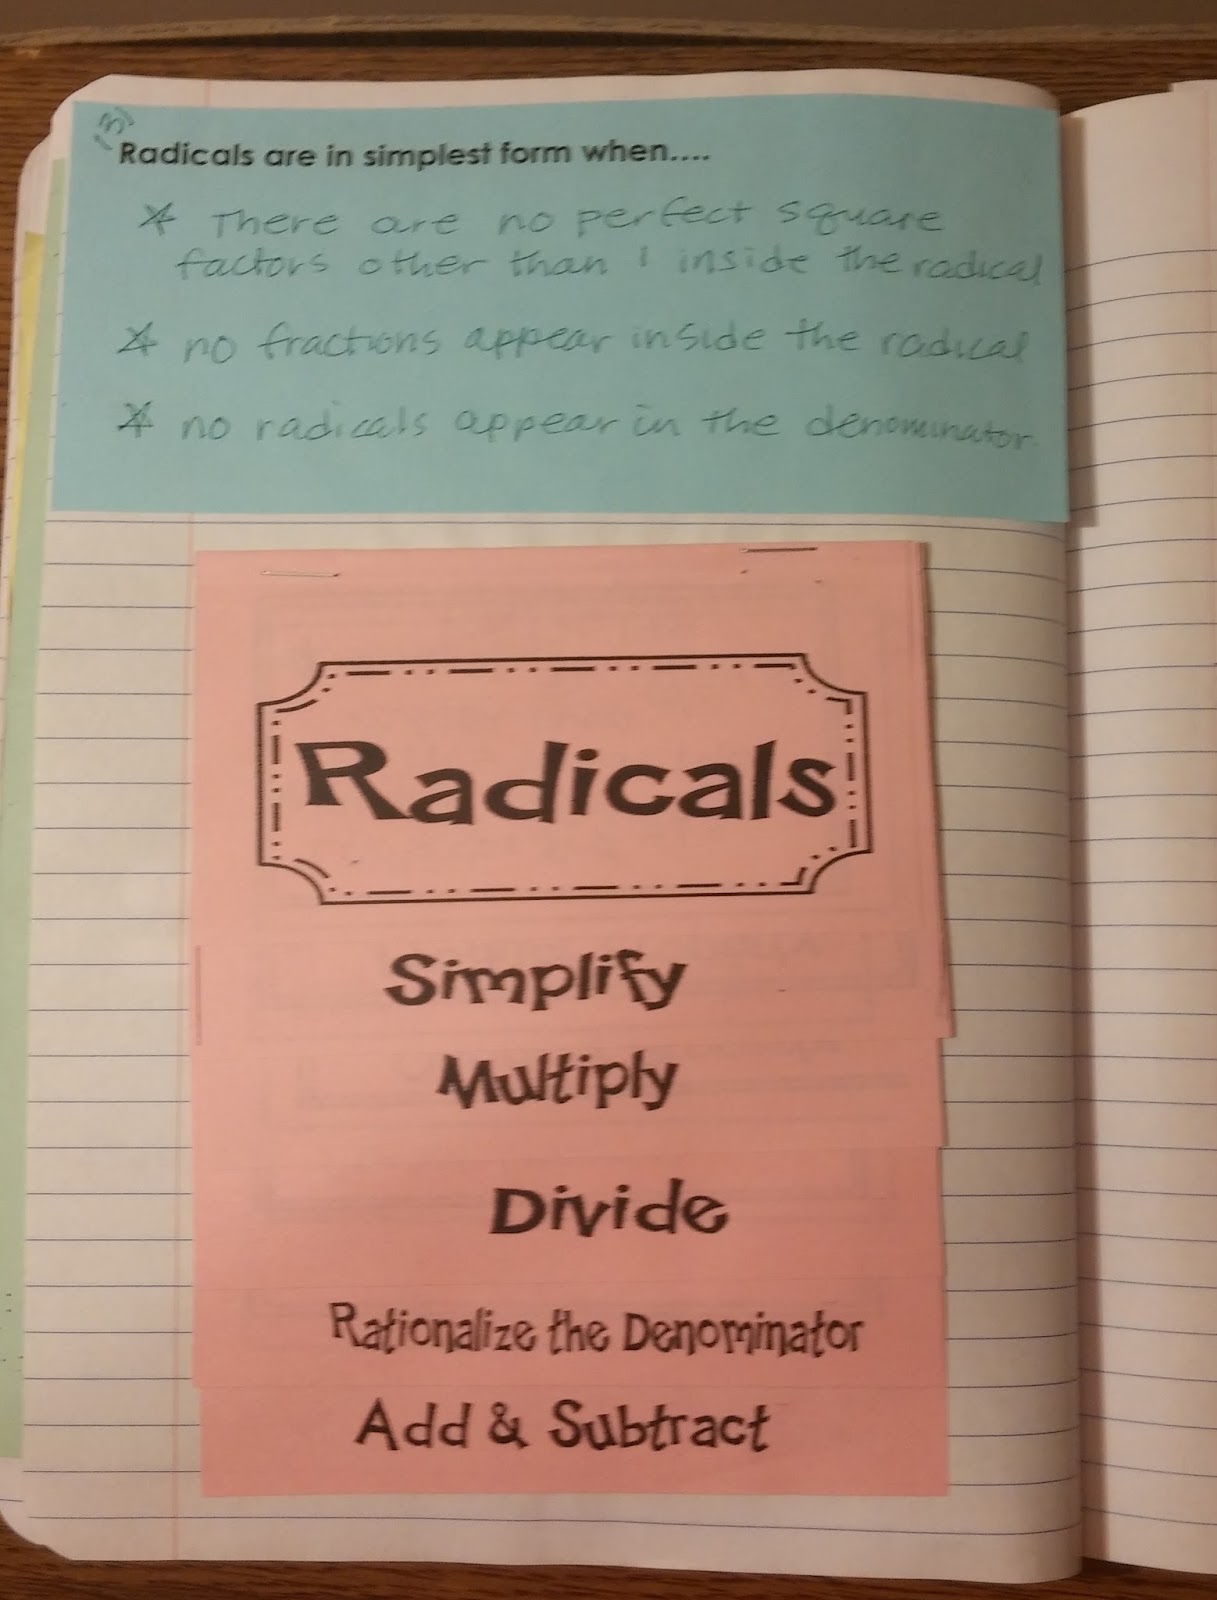 (3)
Radicals are in simplest form when....
* There are no perfect square
factors other than 1 inside the radical
* no fractions appear inside the radical
* no radicals appear in the denominator.
Radicals
Simplify
Multiply
Divide
Rationalize the Denominator
Add & Subtract